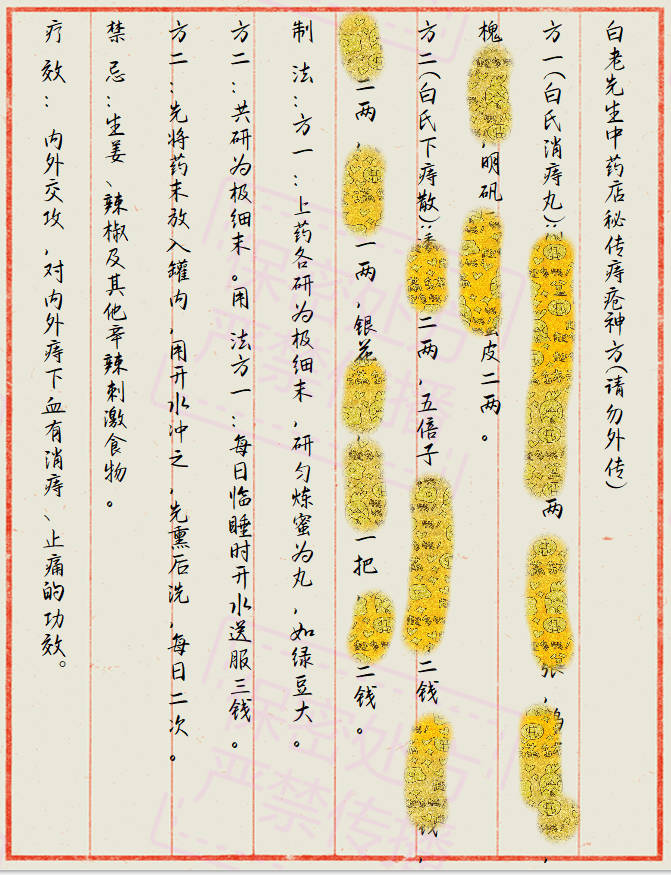 白老先生中药店秘传痔疮神方(请勿外传)
方一(白氏消痔丸): 两 张,
槐 ,明矾 皮二两。
方二(白氏下痔散): 二两,五倍子 二钱 钱,
二两, 一两,银花 一把, 二钱。
制 法:方一:上药各研为极细末,研匀炼蜜为丸,如绿豆大。
方二:共研为极细末。用 法方一:每日临睡时开水送服三钱。
方二:先将药末放入罐内,用开水冲之,先熏后洗,每日二次。
禁 忌:生姜、辣椒及其他辛辣刺激食物。
疗 效: 内外交攻,对内外痔下血有消痔、止痛的功效。
保密处方
严禁传播
保密处方
严禁传播